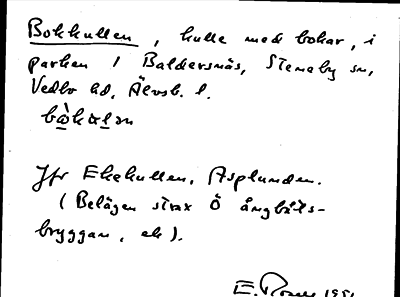 Bokkullen, kulle med bokar, i
parken i Baldersnäs, Steneby sn,
Vedbo hd, Älvsb. l.
bò̱kɷḻən
Jfr Ekekullen, Asplunden.
(Belägen strax Ö ångbåts-
bryggan, ek).
E.